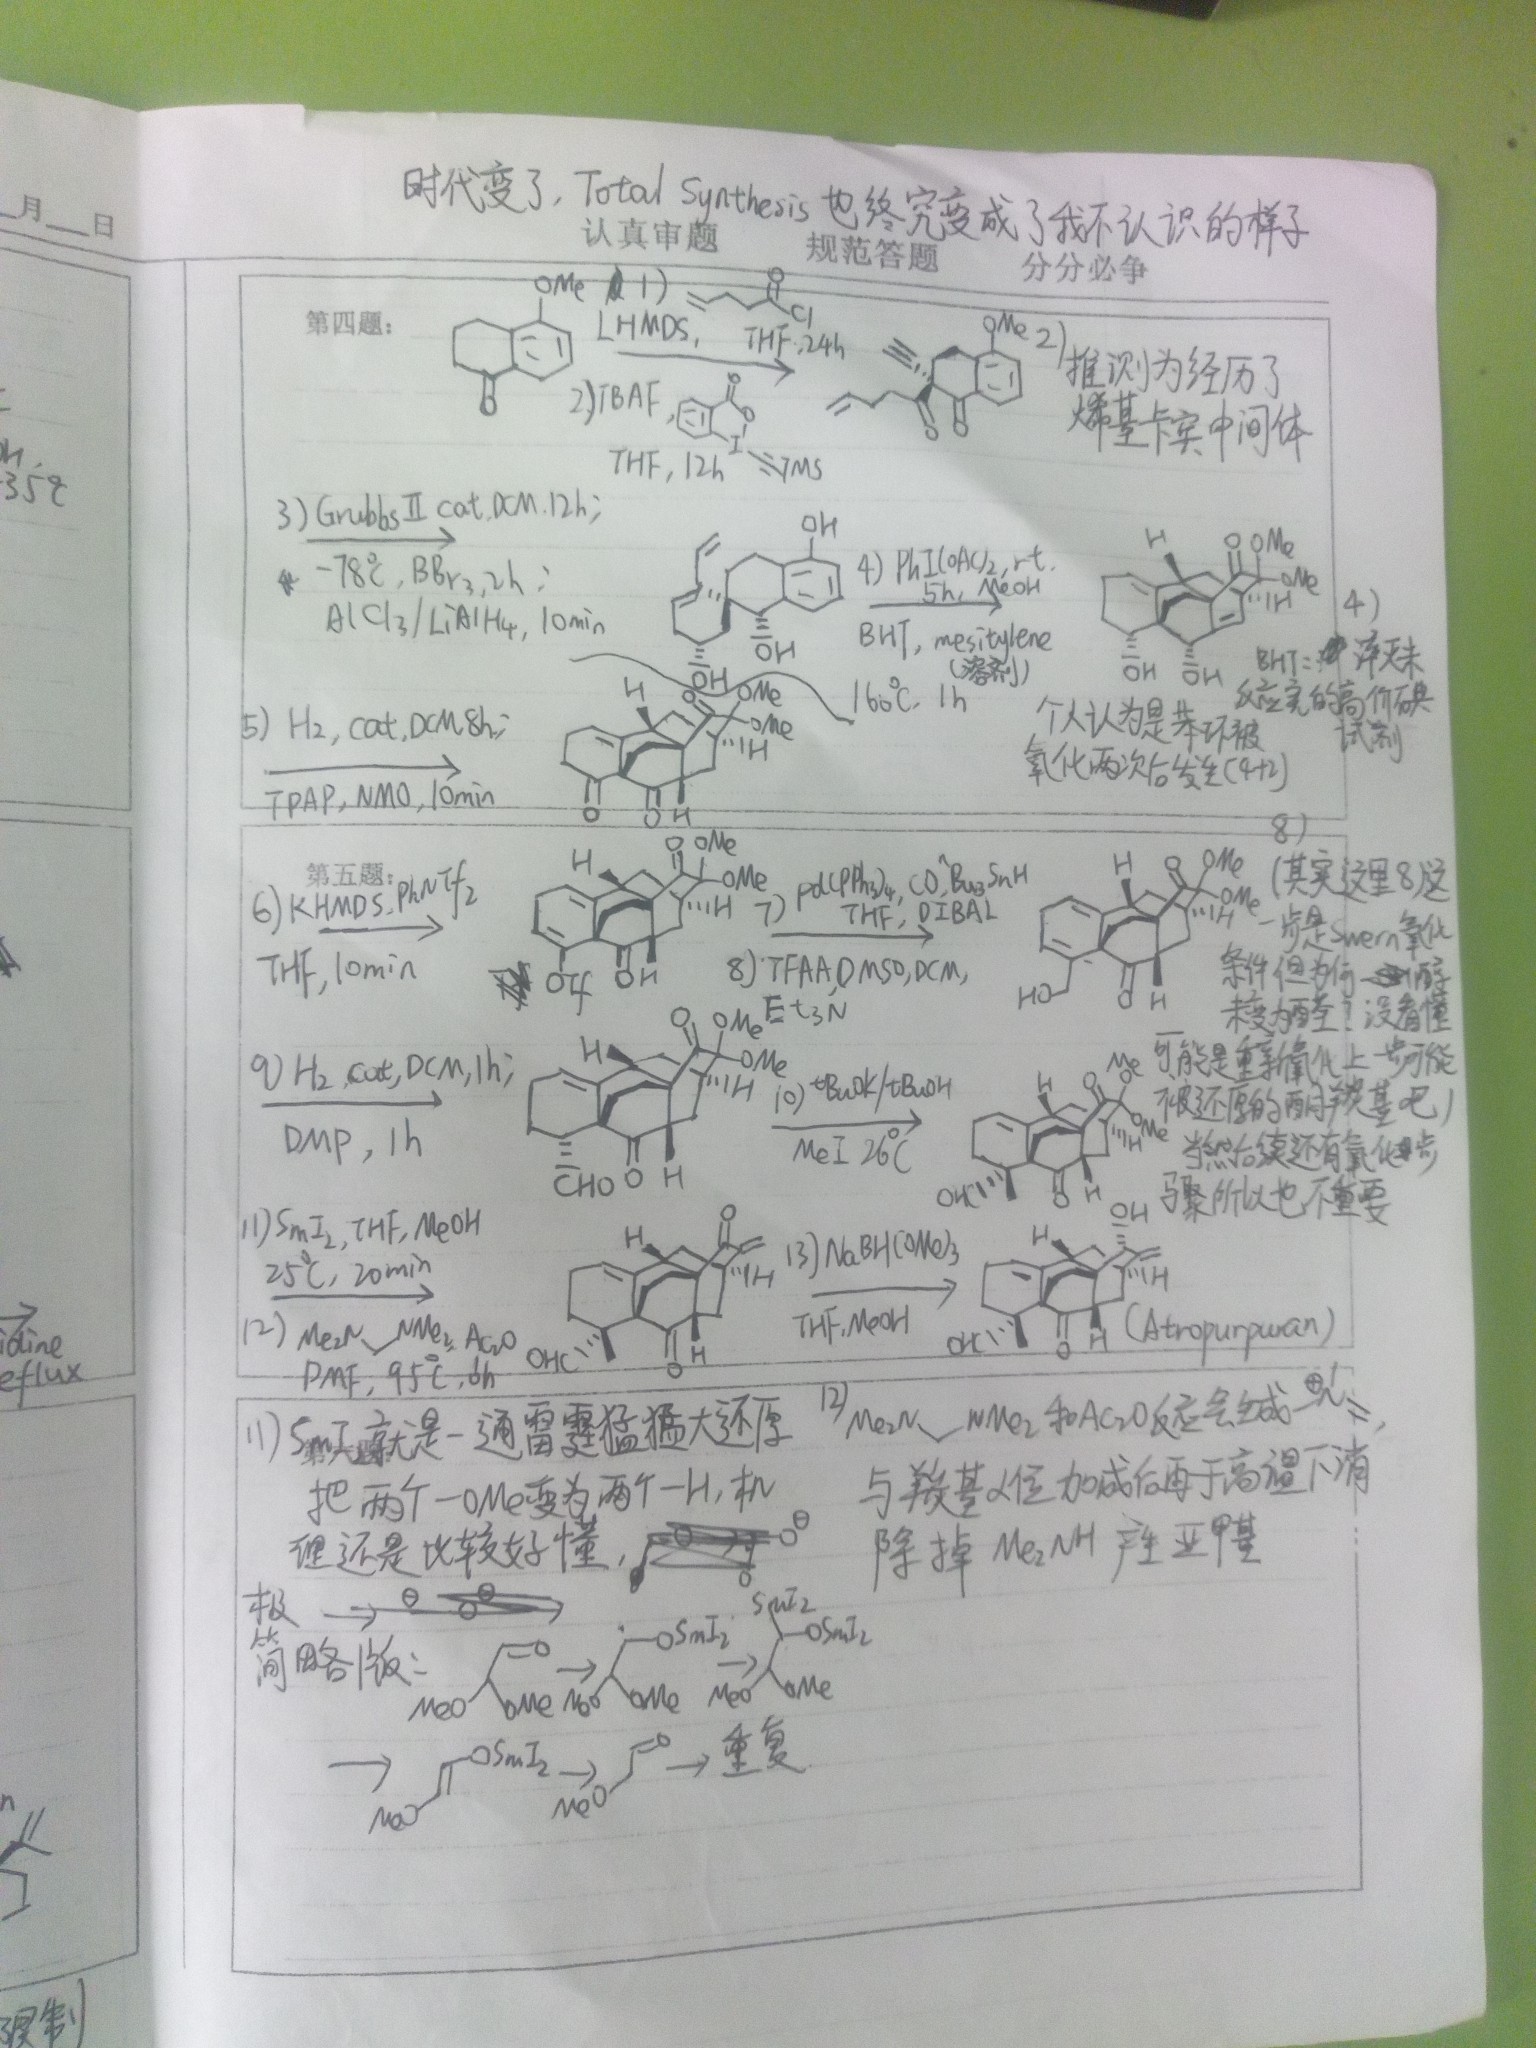 月 日
时代变了, Total Synthesis也终究变成了我不认识的样子
认真审题 规范答题 分分必争
第四题:
OMe 1) O Cl
LHMDS, THF, 24h
2) TBAF, O O I TMS
THF, 12h
O
OMe
O O
2) 推测为经历了
烯基卡宾中间体
3) Grubbs II cat, DCM, 12h;
-78℃, BBr3, 2h;
AlCl3/LiAlH4, 10min
OH
OH
OH
4) PhI(OAc)2, rt.
5h, MeOH
BHT, mesitylene
(溶剂)
160℃, 1h
H O OMe
OMe
H
OH OH
4)
BHT: 淬灭未
反应完的高价碘
试剂
个人认为是苯环被
氧化两次后发生(4+2)
5) H2, cat, DCM, 8h;
TPAP, NMO, 10min
H O OMe
OMe
H
O O H
第五题:
6) KHMDS, PhNTf2
THF, 10min
H O OMe
OMe
H
OTf O H
7) pd(PPh3)4, CO, nBu3SnH
THF, DIBAL
8) TFAA, DMSO, DCM,
Et3N
H O OMe
OMe
H
HO O H
8)
(其实这里8)这
一步是Swern氧化
条件但为何醇
未变为醛? 没看懂
可能是重新氧化上一步可能
被还原的酮羰基吧)
当然后续还有氧化步
骤所以也不重要
9) H2, cat, DCM, 1h;
DMP, 1h
H O OMe
OMe
H
CHO O H
10) tBuOK/tBuOH
MeI 26℃
H O OMe
OMe
H
OHC O H
11) SmI2, THF, MeOH
25℃, 20min
12) Me2N NMe2, Ac2O
DMF, 95℃, 6h
H O
H
OHC O H
13) NaBH(OMe)3
THF, MeOH
OH
H
H
OHC O H
(Atropurpuran)
11) SmI2就是一通雷霆猛猛大还原
把两个-OMe变为两个-H, 机
理还是比较好懂,
极
简略版:
O
MeO OMe
OSmI2
MeO OMe
SmI2
OSmI2
MeO OMe
OSmI2
MeO
O
MeO
重复
12) Me2N NMe2和Ac2O反应会生成 ⊕N,
与羰基α位加成后再于高温下消
除掉Me2NH产生亚甲基
35℃
idine
eflux
限制)